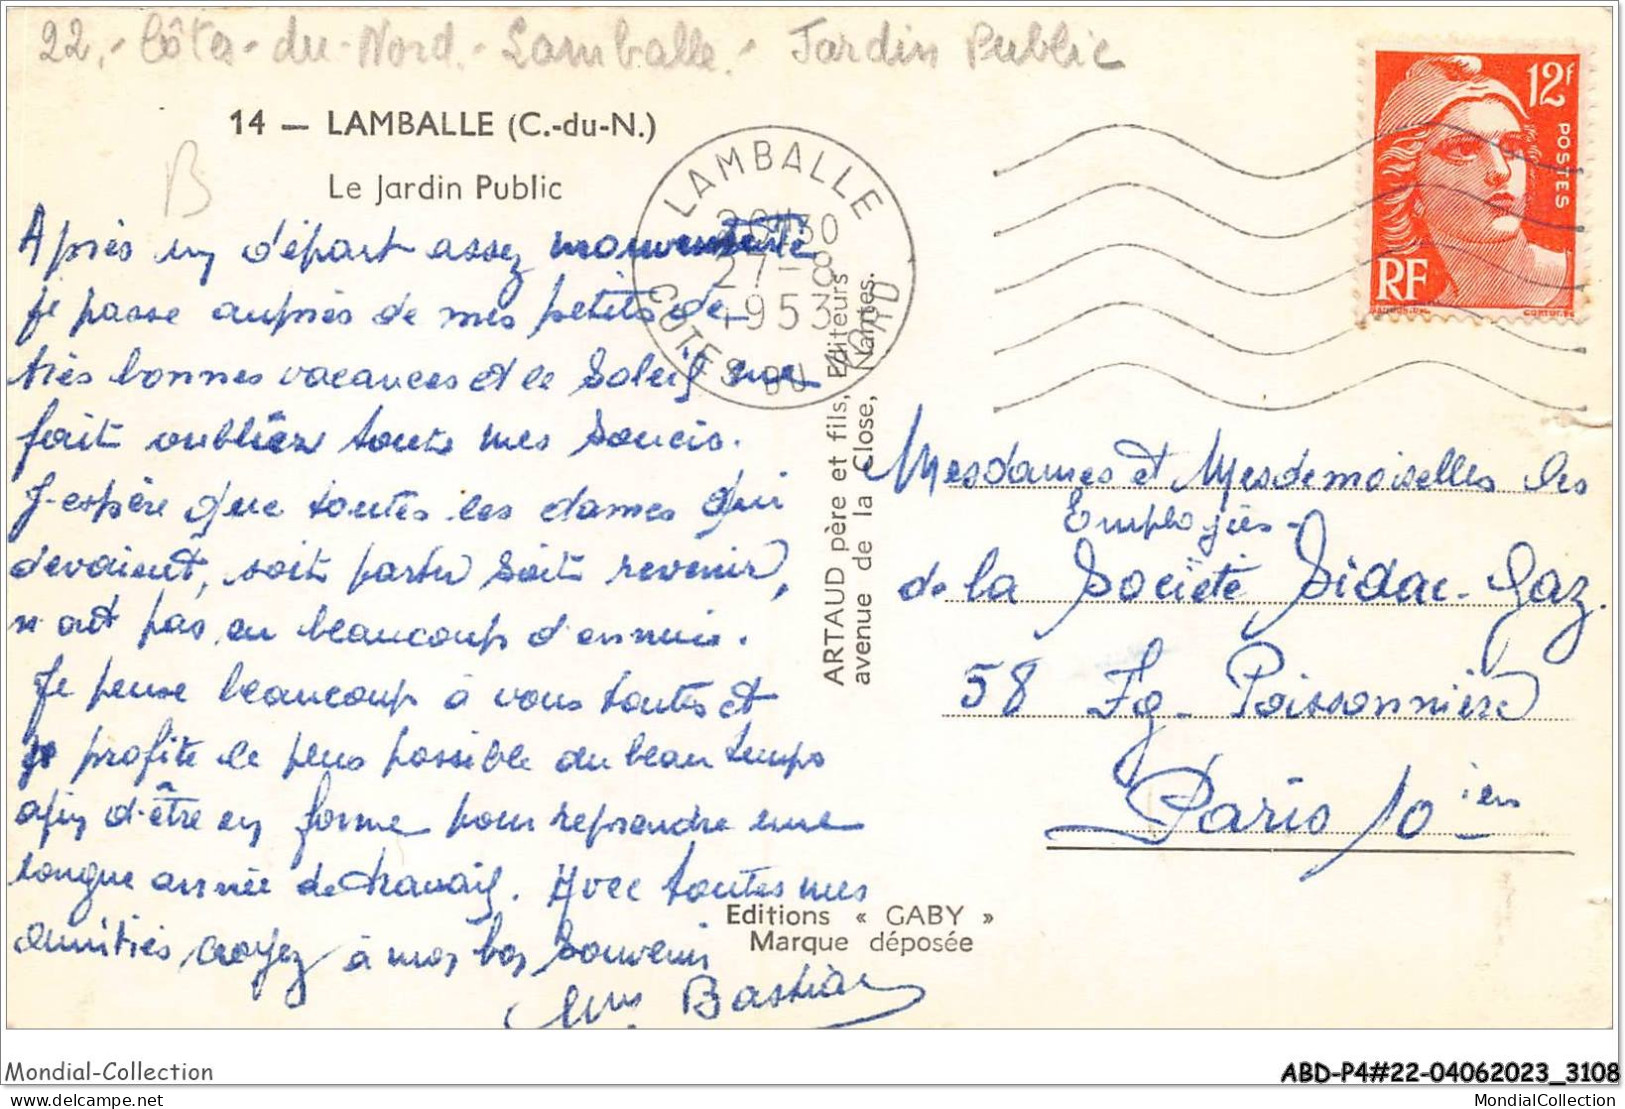 22.- Côtes-du-Nord.- Lamballe.- Jardin Public
14 — LAMBALLE (C.-du-N.)
Le Jardin Public
B
Après un départ assez mouvementé
je passe auprès de mes petits de
très bonnes vacances et le Soleil me
fait oublier toute mes soucis.
J'espère que toutes les dames qui
devaient, soit partir soit revenir,
n'ont pas eu beaucoup d'ennuis.
Je pense beaucoup à vous toutes et
je profite le plus possible du beau temps
afin d'être en forme pour reprendre une
longue année de travail. Avec toutes mes
amitiés, croyez à mon bon souvenir
Mme Bastian
LAMBALLE
27-8
1953
COTES DU NORD
ARTAUD père et fils, Editeurs
avenue de la Close, Nantes.
Editions « GABY »
Marque déposée
12F
POSTES
RF
Mesdames et Mesdemoiselles les
Employées
de la Société Sidac-Gaz.
58 Fg- Poissonnière
Paris 10 ien
Mondial-Collection
ABD-P4#22-04062023_3108
delcampe.net
MondialCollection